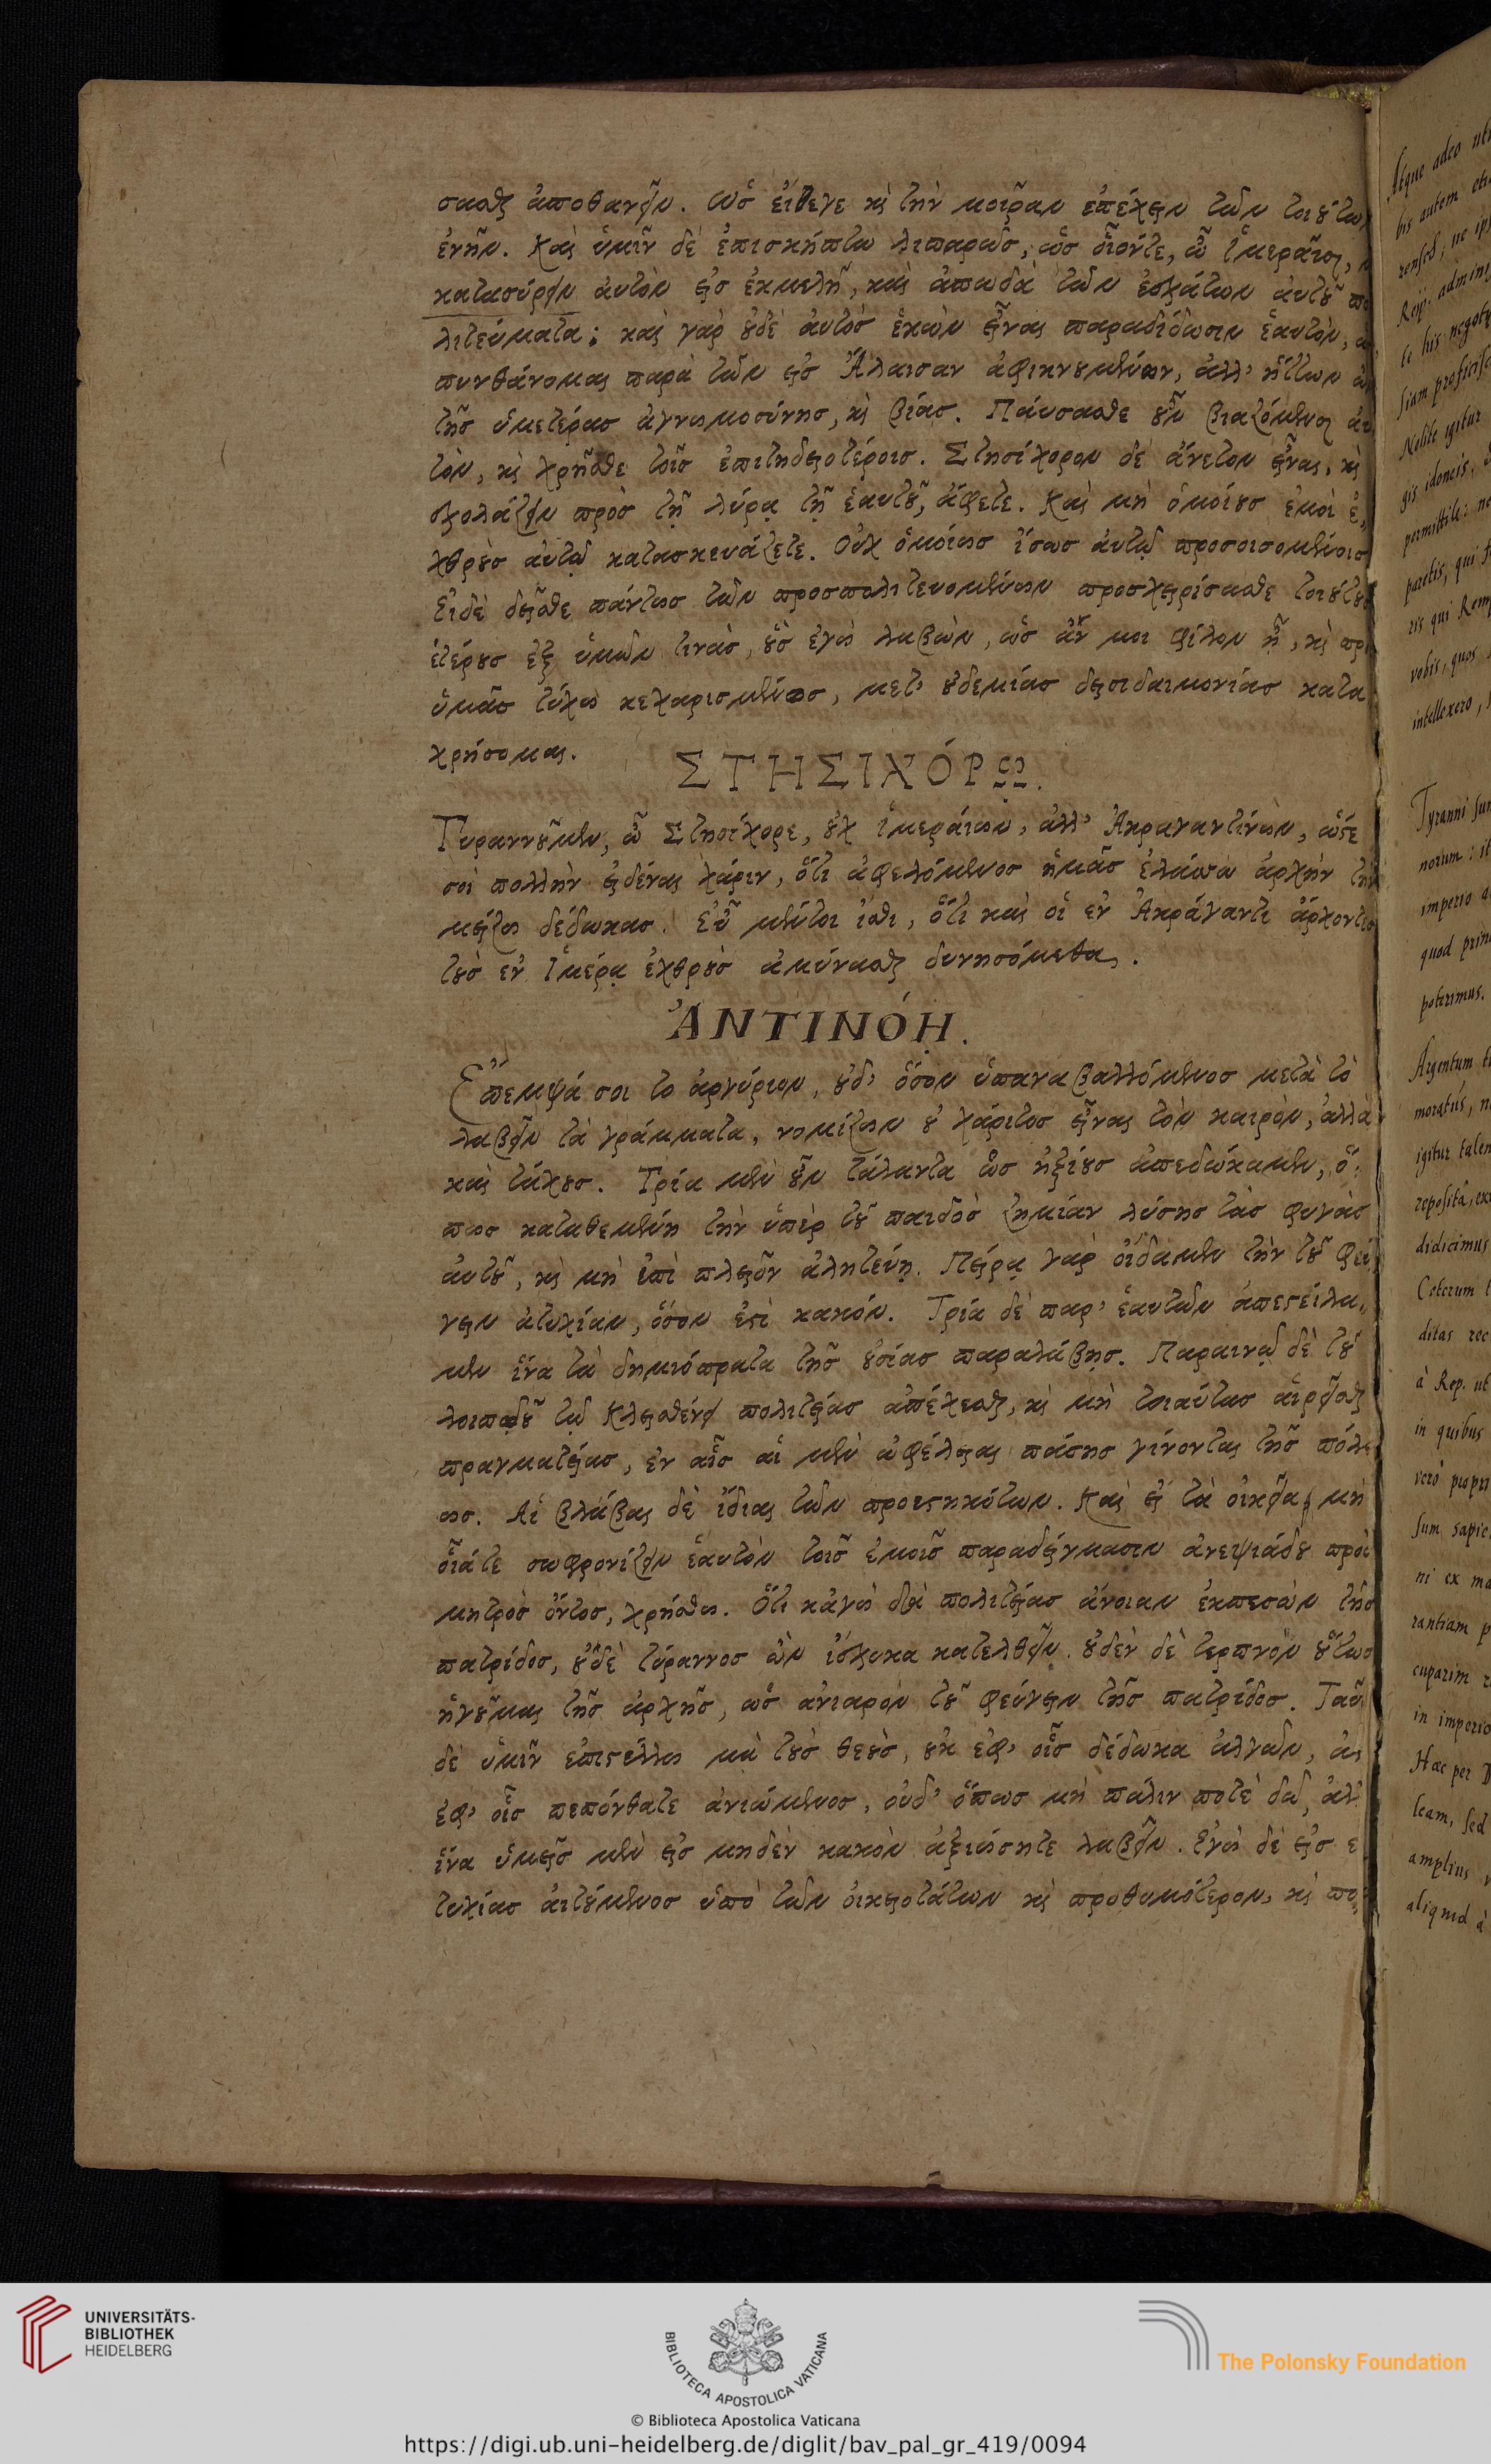 σασθαι ἀποθανεῖν. ὡς εἴθεγε καὶ τὴν μοῖραν ἐπέχειν τῶν τοιούτων
ἐνῆν. Καὶ ὑμῖν δὲ ἐπισκήπτω λιπαρῶς, ὡς οἷόντε, ὦ Ἱμεραῖοι,
κατασύρειν ἀυτὸν εἰς ἐκμελῆ, καὶ ἀπωδὰ τῶν ἐσχάτων ἀυτοῦ πο
λιτεύματα; καὶ γὰρ οὐδὲ ἀυτὸς ἑκὼν εἶναι παραδίδωσιν ἑαυτὸν,
πυνθάνομαι παρὰ τῶν εἰς Ἄλαισαν ἀφικνουμένων, ἀλλ' ἥττων
τῆς ὑμετέρας ἀγνωμοσύνης, καὶ βίας. Πάυσασθε οὖν βιαζόμενοι ἀυ
τὸν, καὶ χρῆσθε τοῖς ἐπιτηδειοτέροις. Στησίχορον δὲ ἄνετον εἶναι, καὶ
σχολάζειν πρὸς τῇ λύρᾳ τῇ ἑαυτοῦ, ἄφετε. Καὶ μὴ ὁμοίους ἐμοὶ ἐ,
χθροὺς ἀυτῷ κατασκευάζετε. Οὐχ ὁμοίως ἴσως ἀυτῷ προσοισομένοις
Εἰδὲ δεῖσθε πάντως τῶν προσπολιτευομένων προσχειρίσασθε τοιούτους
ἑτέρους ἐξ ὑμῶν τινὰς, οὓς ἐγὼ λαβὼν, ὡς ἄν μοι φίλον ᾖ, καὶ πρ
ὑμᾶς τύχω κεχαρισμένος, μετ' οὐδεμίας δεισιδαιμονίας κατα
χρήσομαι.
ΣΤΗΣΙΧΌΡΩ.
Τυραννοῦμεν, ὦ Στησίχορε, οὐχ ἱμεράιων, ἀλλ' Ἀκραγαντίνων, ὥστε
σοὶ πολλὴν εἰδέναι χάριν, ὅτι ἀφελόμενος ἡμᾶς ἐλάττω ἀρχὴν τὴν
μείζω δέδωκας. Εὖ μέντοι ἴσθι, ὅτι καὶ οἱ ἐν Ἀκράγαντι ἄρχοντες
τοὺς ἐν Ἱμέρᾳ ἐχθροὺς ἀμύνασθαι δυνησόμεθα.
ἈΝΤΙΝΌΗ.
Ἔπεμψά σοι το ἀργύριον, οὐδ' ὅσον ὑπαναβαλλόμενος μετὰ τὸ
λαβεῖν τὰ γράμματα, νομίζων οὐ χάριτος εἶναι τὸν καιρὸν, ἀλλὰ
καὶ τάχους. Τρία μὲν οὖν τάλαντα ὡς ἠξίους ἀπεδώκαμεν, ὅ,
πως καταθεμένη τὴν ὑπὲρ τοῦ παιδὸς ζημίαν λύσης τὰς φυγὰς
ἀυτοῦ, καὶ μὴ ἐπὶ πλεῖον ἀλητεύῃ. Πείρᾳ γὰρ οἴδαμεν τὴν τοῦ φεύ
γειν ἀτυχίαν, ὅσον ἐστὶ κακόν. Τρία δὲ παρ' ἑαυτῶν ἀπεστείλα,,
μεν ἵνα τὰ δημιόπρατα τῆς οὐσίας παραλάβῃς. Παραινῶ δὲ τοῦ
λοιποῦ τῷ Κλεισθένει πολιτείας ἀπέχεσθαι, καὶ μὴ τοιαύτας ἁιρεῖσθαι
πραγματείας, ἐν αἷς αἱ μὲν ὠφέλειαι πάσης γίνονται τῆς πόλε
ως. Αἱ βλάβαι δὲ ἴδιαι τῶν προεστηκότων. Καὶ εἰ τὰ οἰκεῖα μὴ
οἷάτε σωφρονίζειν ἑαυτὸν τοῖς ἐμοῖς παραδείγμασιν ἀνεψιάδου πρὸς
μητρὸς ὄντος, χρήσθω. Ὅτι κἀγὼ διὰ πολιτείας ἄνοιαν ἐκπεσὼν τῆς
πατρίδος, οὐδὲ τύραννος ὢν ἰσχυκα κατελθεῖν. οὐδὲν δὲ τερπνὸν οὕτως
ἡγοῦμαι τῆς ἀρχῆς, ὡς ἀνιαρὸν τοῦ φεύγειν τῆς πατρίδος. Ταῦτα
δὲ ὑμῖν ἐπιστέλλω μὰ τοὺς θεοὺς, οὐκ ἐφ' οἷς δέδωκα ἀλγῶν,
ἐφ' οἷς πεπόνθατε ἀνιώμενος, οὐδ' ὅπως μὴ πάλιν ποτὲ δῶ, ἀλλ'
ἵνα ὑμεῖς μὲν εἰς μηδὲν κακὸν ἀξιώσητε λαβεῖν. Ἐγὼ δὲ εἰς ε
τυχίας ἀιτούμενος ὑπὸ τῶν ὀικειοτάτων καὶ προθυμότερον, καὶ πο,
Atque adeo
bis autem
Reip.
te his
siam
Nolite igitur
gis idoneis,
permittite:
paretis, qui
ris qui Rem
vobis, quos
intellexero,
Tyranni
norum:
imperio
quod
poterimus.
Argentum
moratus,
igitur talen
reposita,
didicimus
Ceterum
ditas
à Rep. ut
in quibus
verò propri
sum sapie
ni ex ma
rantiam
cuparim
in imperio
Hæc per
leam, sed
amplius
aliquid à
UNIVERSITÄTS-
BIBLIOTHEK
HEIDELBERG
BIBLIOTECA APOSTOLICA VATICANA
The Polonsky Foundation
© Biblioteca Apostolica Vaticana
https://digi.ub.uni-heidelberg.de/diglit/bav_pal_gr_419/0094